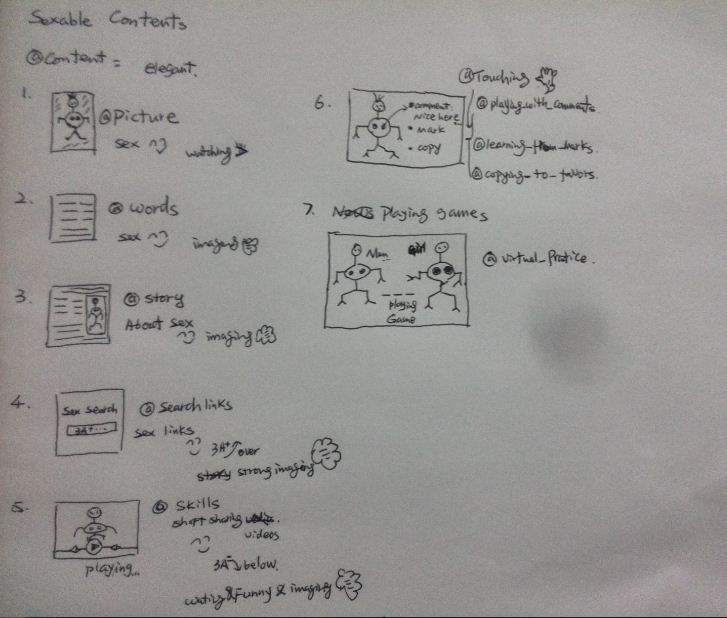 Sexable Contents
@Content = elegant.
1.
@Picture
sex
watching
2.
@words
sex
imaging
3.
@story
About sex
imaging
4.
Sex search
3A+...
@Searchlinks
sex links
3A+ over
strong imaging
5.
playing...
@Skills
sharing
videos
3A- below.
& Funny & imaging
6.
comment:
Nice here
mark
copy
@Touching
@playing_with_comments
@learning_from_marks.
@copying_to_
7. Playing games
Man
Girl
playing
Game
@virtual_Pratice.